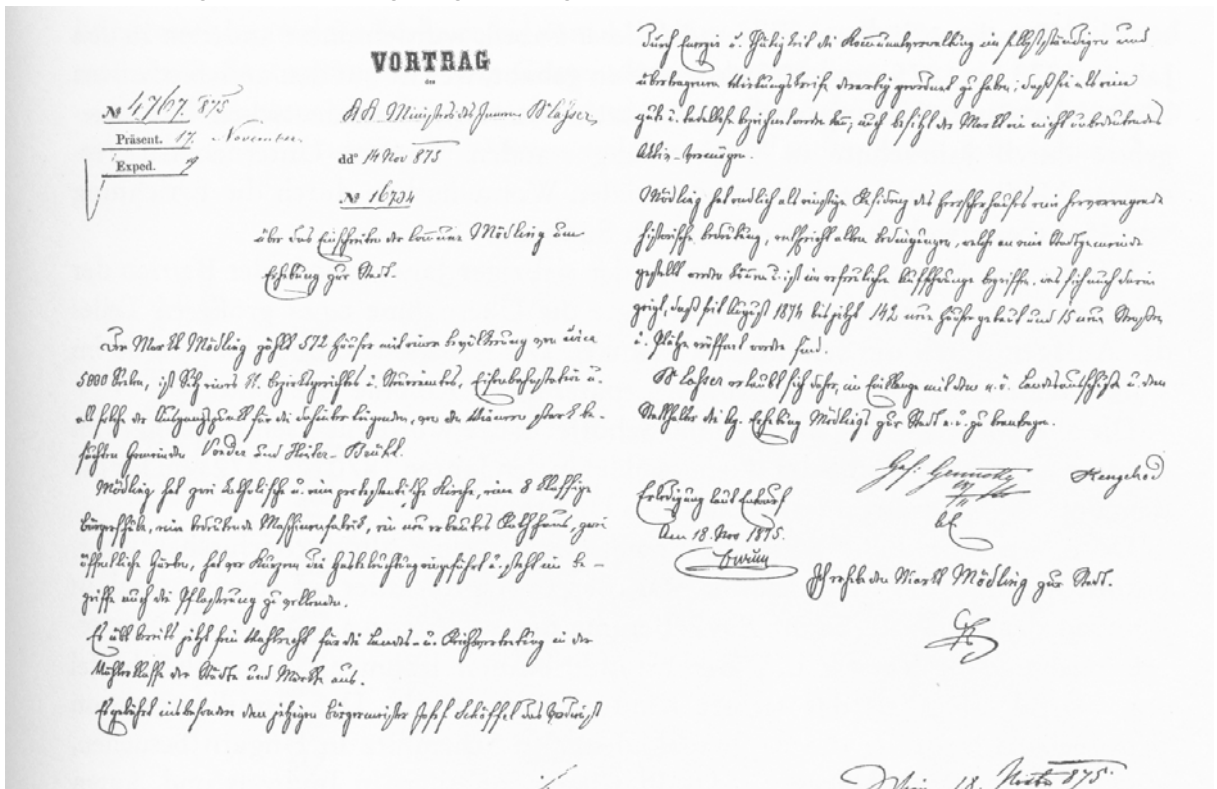 VORTRAG
des
№ 4767. 875
KK. Ministers des Innern B Lasser,
Präsent. 17. November.
dd° 14 Nov 875
Exped.
№ 16734
über das Einschreiten der Commune Mödling um
Erhebung zur Stadt.
Der Markt Mödling zählt 572 Häuser mit einer Bevölkerung von circa
5000 Seelen, ist Sitz eines Bezirksgerichtes u. Steueramtes, Eisenbahnstation u.
als solche der Ausgangspunkt für die dahinter liegenden, von den Wienern stark be-
suchten Gemeinden Vorder und Hinter-Brühl.
Mödling hat zwei katholische u. eine protestantische Kirche, eine 8 klassige
Bürgerschule, eine bedeutende Maschinenfabrik, ein neu erbautes Rathhaus, zwei
öffentliche Gärten, hat vor Kurzem die Gasbeleuchtung eingeführt u. steht im Be-
griffe auch die Pflasterung zu vollenden.
Es übt bereits jetzt sein Wahlrecht für die Landes- u. Reichsvertretung in der
Wählerklasse der Städte und Märkte aus.
Es gebührt insbesondere dem jetzigen Bürgermeister Josef Schöffel das Verdienst
durch Energie u. Thätigkeit die Kommunalverwaltung im selbstständigen und
übertragenen Wirkungskreise derartig geordnet zu haben, daß sie als eine
gute u. tadellose bezeichnet werden kann; auch besitzt der Markt ein nicht unbedeutendes
Aktiv-Vermögen.
Mödling hat endlich als einstige Residenz des Herrscherhauses eine hervorragende
historische Bedeutung, entspricht allen Bedingungen, welche an eine Stadtgemeinde
gestellt werden können u. ist im erfreulichen Aufschwunge begriffen, was sich auch darin
zeigt, daß seit August 1874 bis jetzt 142 neue Häuser gebaut und 15 neue Straßen
u. Plätze eröffnet worden sind.
B Lasser erlaubt sich daher, im Einklange mit dem n. ö. Landesausschuße u. dem
Statthalter die Erhebung Mödlings zur Stadt a. u. zu beantragen.
Erledigung laut Entwurf
Am 18. Nov 1875.
Ich erhebe den Markt Mödling zur Stadt.
Wien, 18. 875.